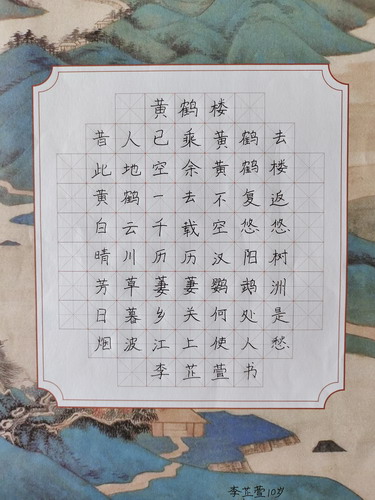 黄鹤楼
昔人已乘黄鹤去
此地空余黄鹤楼
黄鹤一去不复返
白云千载空悠悠
晴川历历汉阳树
芳草萋萋鹦鹉洲
日暮乡关何处是
烟波江上使人愁
李芷萱书
李芷萱10岁